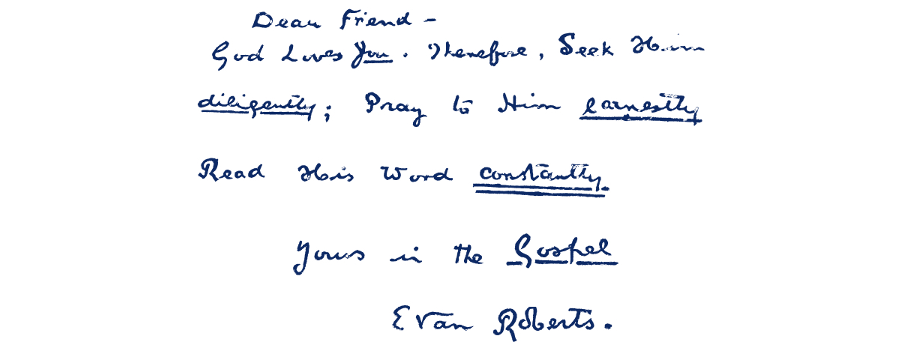 Dear Friend -
God Loves You. Therefore, Seek Him
diligently; Pray to Him earnestly
Read His Word constantly.
Yours in the Gospel
Evan Roberts.